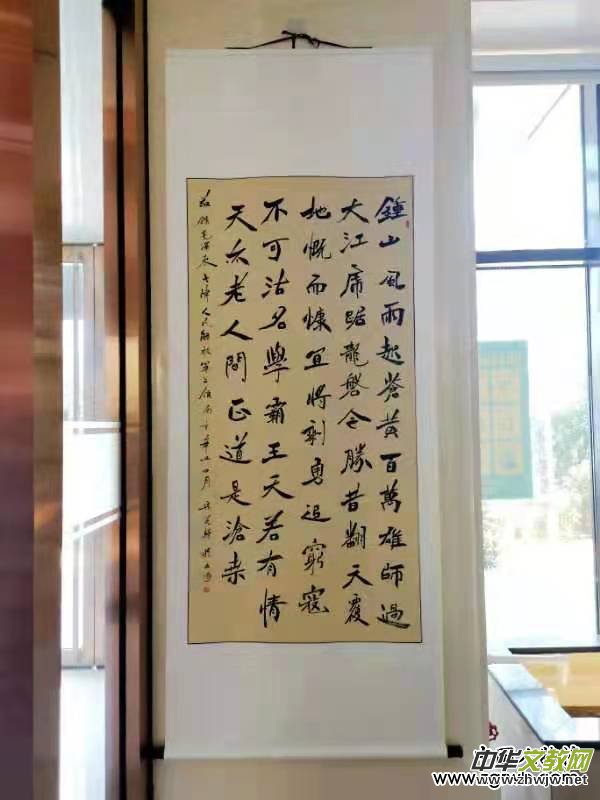 鍾山風雨起蒼黄百萬雄師過
大江虎踞龍盤今勝昔翻天覆
地慨而慷宜將剩勇追窮寇
不可沽名學霸王天若有情
天亦老人間正道是滄桑
錄毛澤東七律人民解放軍占領南京
中华文教网